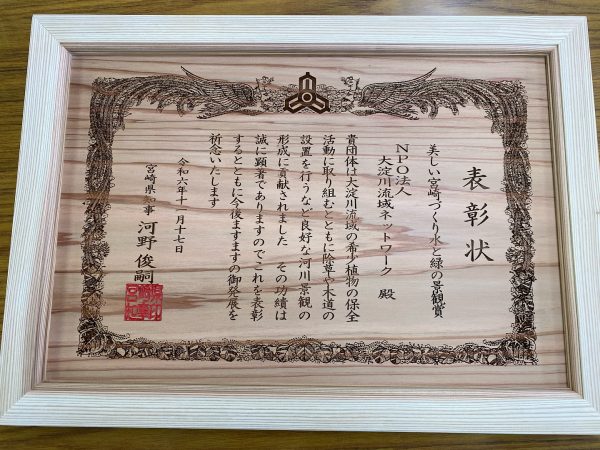 表彰状
美しい宮崎づくり水と緑の景観賞
NPO法人
大淀川流域ネットワーク 殿
貴団体は大淀川流域の希少植物の保全
活動に取り組むとともに除草や木道の
設置を行うなど良好な河川景観の
形成に貢献されました その功績は
誠に顕著でありますのでこれを表彰
するとともに今後ますますの御発展を
祈念いたします
令和六年十一月十七日
宮崎県知事 河野 俊嗣